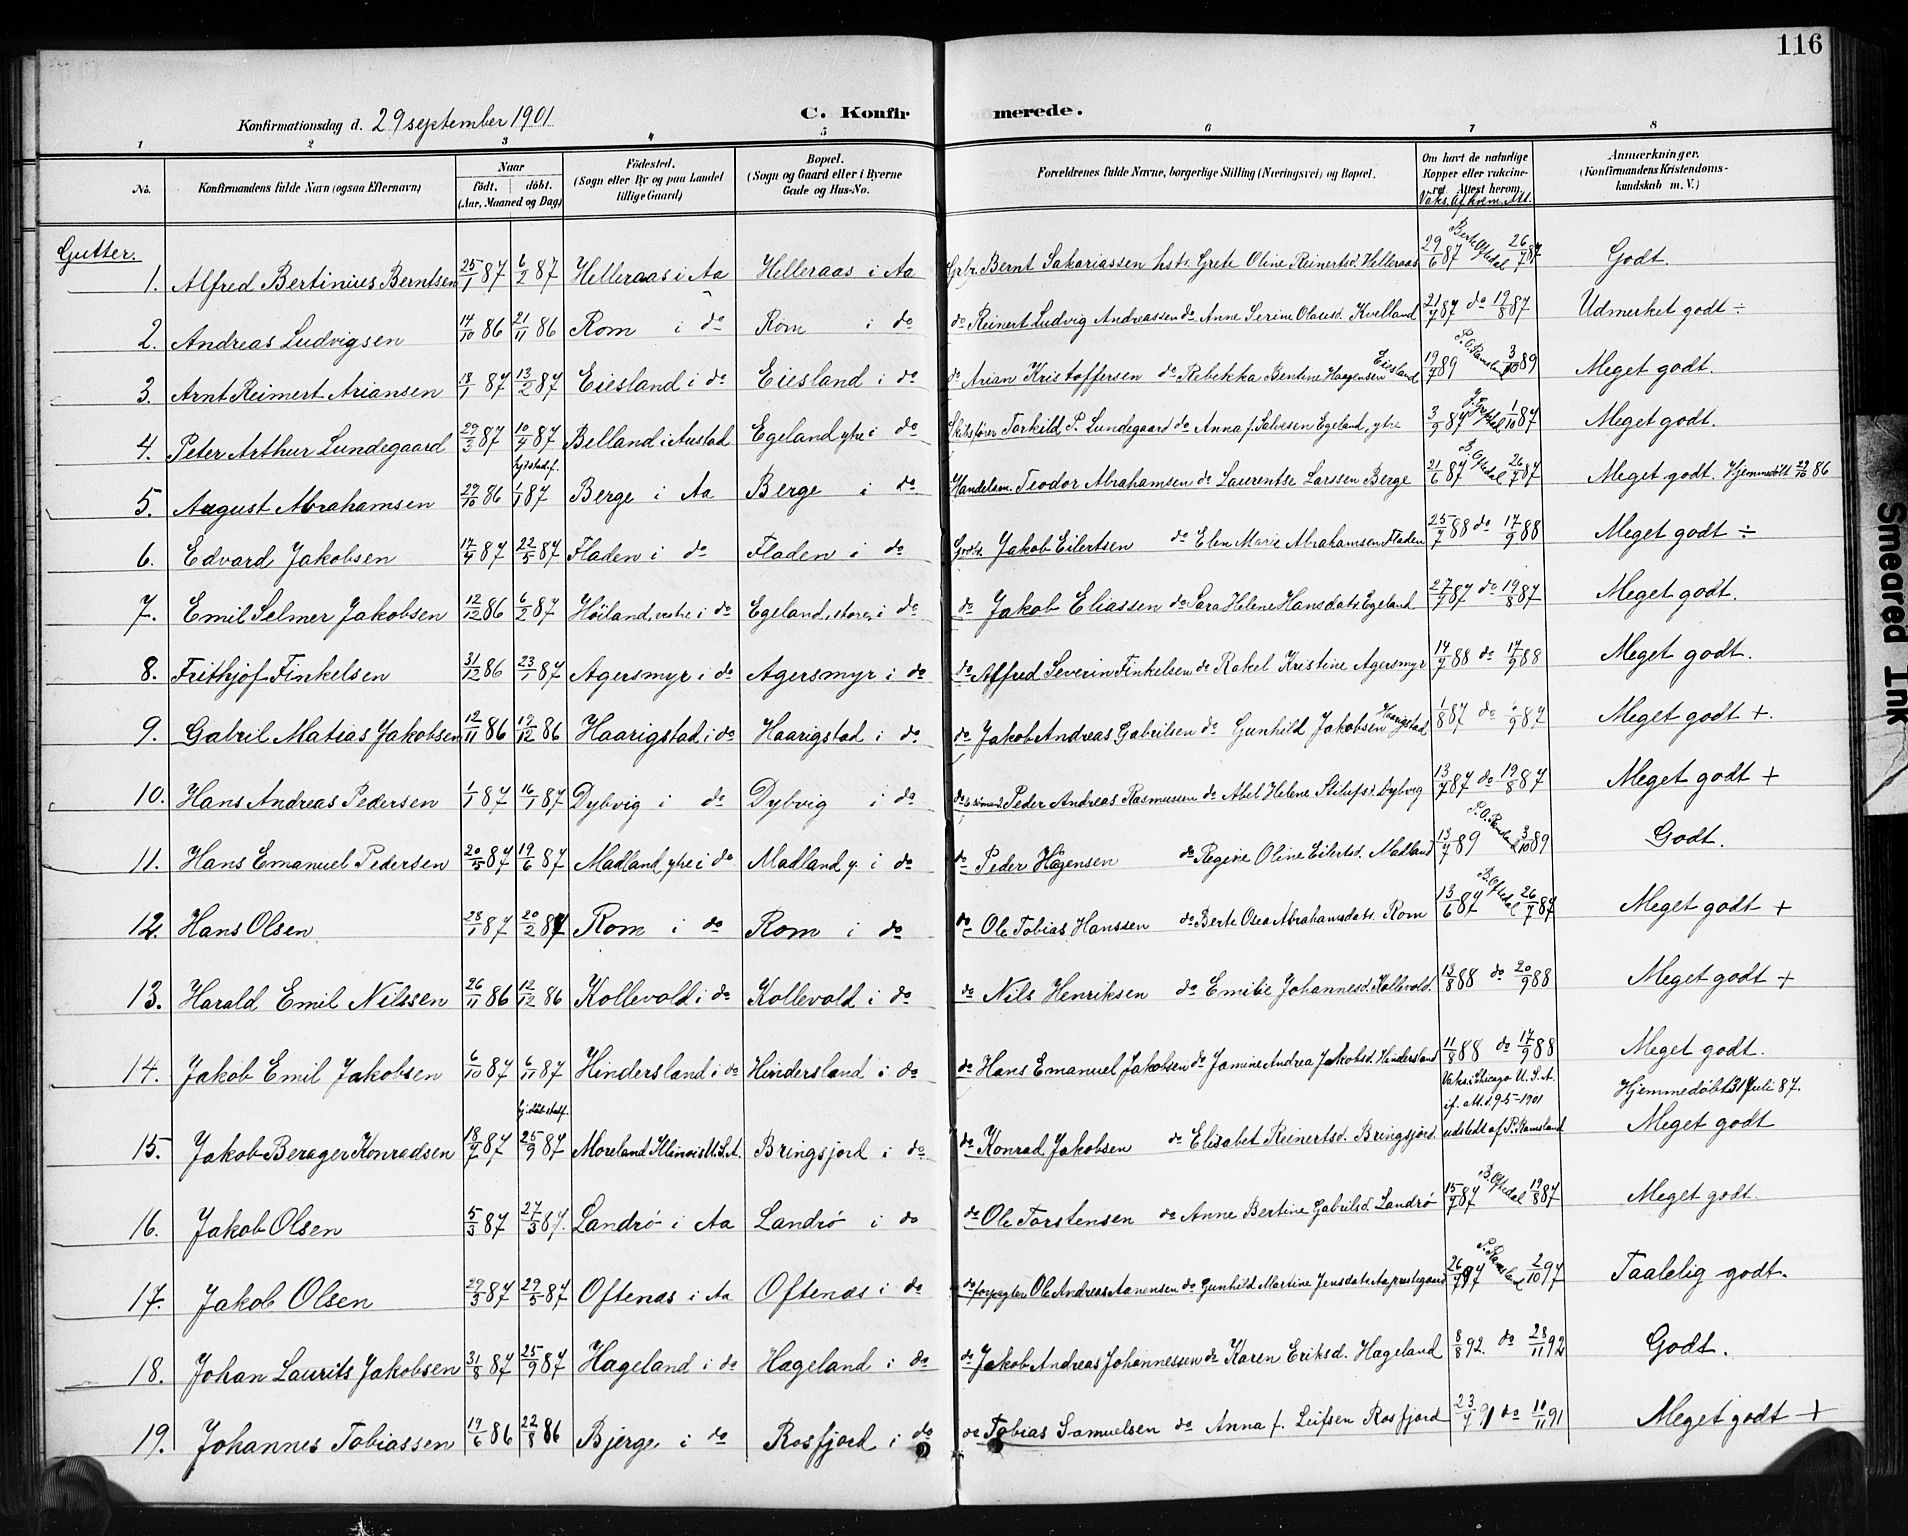 116
Konfirmationsdag d. 29 september 1901
C. Konfirmerede.
1 2 3 4 5 6 7 8
No. Konfirmandens fulde Navn (ogsaa Efternavn) Naar født. døbt. (Aar, Maaned og Dag) Fødested. (Sogn eller By og paa Landet tillige Gaard) Bopæl. (Sogn og Gaard eller i Byerne Gade og Hus-No. Forældrenes fulde Navne, borgerlige Stilling (Næringsvei) og Bopæl. Om havt de naturlige Kopper eller vaccineret. Attest herom. Vaks. Af hvem. Att. Anmærkninger. (Konfirmandens Kristendomskundskab m. V.)
Gutter.
1. Alfred Bertinius Berntsen 25/1 87 6/2 87 Helleraas i Aa Helleraas i Aa Grbr. Bernt Sakariassen hstr. Grete Oline Reinertsd. Helleraas 29/6 87 Berte Oftedal 26/7 87 Godt.
2. Andreas Ludvigsen 14/10 86 21/11 86 Rom i do Rom i do do Reinert Ludvig Andreassen do Anne Serine Olausd. Kvelland 21/7 87 do 19/8 87 Udmerket godt ÷
3. Arnt Reimert Ariansen 18/1 87 13/2 87 Eiesland i do Eiesland i do do Arian Kristoffersen do Rebekka Bentine Haagensen Eiesland 19/7 89 P. O. Ramsland 3/10 89 Meget godt.
4. Peter Arthur Lundegaard 29/3 87 10/4 87 Belland i Austad Egeland ytre i do Skibsfører Torkild P. Lundegaard do Anna f. Salvesen Egeland, ytre 3/9 87 1/10 87 Meget godt.
5. August Abrahamsen 29/10 86 1/1 87 Berge i Aa Berge i do Handelsm. Teodor Abrahamsen do Laurentse Larssen Berge 21/6 87 B. Oftedal 26/7 87 Meget godt. Hjemmedøbt 29/10 86
6. Edvard Jakobsen 17/4 87 22/5 87 Fladen i do Fladen i do Grbr. Jakob Eilertsen do Elen Marie Abrahamsen Fladen 25/7 88 do 17/9 88 Meget godt ÷
7. Emil Selmer Jakobsen 12/12 86 6/2 87 Høiland, vestre i do Egeland, store, i do do Jakob Eliassen do Sara Helene Hansdatr. Egeland 27/7 87 do 19/8 87 Meget godt.
8. Frithjof Finkelsen 31/12 86 23/1 87 Agersmyr i do Agersmyr i do do Alfred Severin Finkelsen do Rakel Kristine Agersmyr 14/7 88 do 17/9 88 Meget godt.
9. Gabril Matias Jakobsen 12/11 86 19/12 86 Haarigstad i do Haarigstad i do do Jakob Andreas Gabrilsen do Gunhild Jakobsen Haarigstad 1/8 87 do 9 87 Meget godt +.
10. Hans Andreas Pedersen 1/1 87 16/1 87 Dybvig i do Dybvig i do do Peder Andreas Rasmussen do Abel Helene Dybvig 13/7 87 do 19/8 87 Meget godt +
11. Hans Emanuel Pedersen 20/5 87 19/6 87 Madland ytre i do Madland y. i do do Peder Hågensen do Regine Oline Eilertsd. Madland 13/7 89 P. O. Ramsland 3/10 89 Godt.
12. Hans Olsen 28/1 87 20/2 87 Rom i do Rom i do do Ole Tobias Hanssen do Berte Olea Abrahamsdatr. Rom 13/6 87 B. Oftedal 26/7 87 Meget godt +
13. Harald Emil Nilssen 26/11 86 12/12 86 Kollevold i do Kollevold i do do Nils Henriksen do Emilie Johannesd. Kollevold. 13/8 88 do 20/9 88 Meget godt +
14. Jakob Emil Jakobsen 6/10 87 6/11 87 Hindersland i do Hindersland i do do Hans Emanuel Jakobsen do Jamine Andrea Jakobsd. Hindersland 11/8 88 do 17/9 88 Meget godt.
15. Jakob Berager Konradsen 18/7 87 25/9 87 Moreland Illinois U.S.A. Bringsjord i do do Konrad Jakobsen do Elisabet Reinertsd. Bringsjord. Vaks. i Chicago U. S. A. if. att. d. 9-5-1901 udstedt af P. Ramsland Hjemmedøbt 31 Juli 87. Meget godt
16. Jakob Olsen 5/3 87 27/3 87. Landrø i Aa Landrø i do do Ole Torstensen do Anne Bertine Gabrilsd. Landrø 15/7 87 B. Oftedal 19/8 87 Meget godt.
17. Jakob Olsen 29/3 87 29/5 87 Oftenæs i Aa Oftenæs i do do forpagter Ole Andreas Aanensen do Gunhild Martine Jensdatr. Aa prestegaard 26/7 97 P. Ramsland 2/10 97 Taalelig godt.
18. Johan Laurits Jakobsen 31/8 87 25/9 87 Hageland i do Hageland i do do Jakob Andreas Johannessen do Karen Eriksd. Hageland 8/8 92. do 28/11 92 Godt.
19. Johannes Tobiassen 19/6 86 22/8 86 Bjerge i do Rosfjord i do do Tobias Samuelsen do Anna f. Leifsen Rosfjord 23/7 91 do 10/11 91 Meget godt +
Smeared Ink